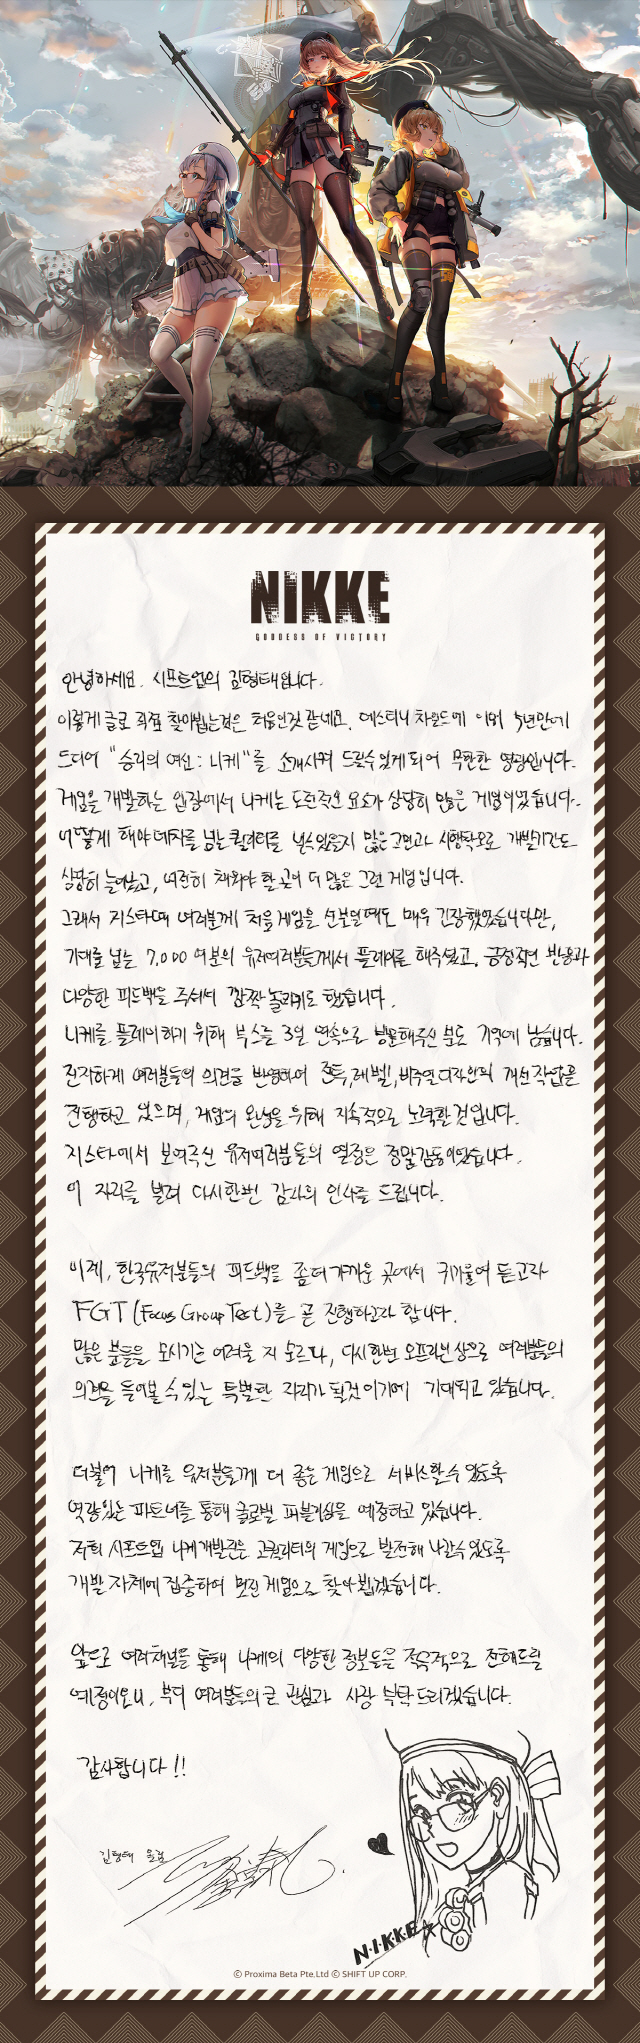 NIKKE
GODDESS OF VICTORY
안녕하세요. 시프트업의 김형태입니다.
이렇게 글로 직접 찾아뵙는것은 처음인것 같네요. 데스티니 차일드에 이어 5년만에
드디어 "승리의 여신: 니케"를 소개시켜 드릴수 있게 되어 무한한 영광입니다.
게임을 개발하는 입장에서 니케는 도전적인 요소가 상당히 많은 게임이었습니다.
어떻게 해야 데차를 넘는 퀄리티를 낼수있을지 많은 고민과 시행착오로 개발기간도
상당히 늘어났고, 여전히 채워야 할 곳이 더 많은 그런 게임입니다.
그래서 지스타때 여러분께 처음 게임을 선보일때도 매우 긴장했었습니다만,
기대를 넘는 7,000여분의 유저여러분들께서 플레이를 해주셨고, 긍정적인 반응과
다양한 피드백을 주셔서 깜짝 놀라기도 했습니다.
니케를 플레이하기 위해 부스를 3일 연속으로 방문해주신 분도 기억에 남습니다.
진지하게 여러분들의 의견을 반영하여 전투, 레벨, 비주얼디자인의 개선작업을
진행하고 있으며, 게임의 완성을 위해 지속적으로 노력할 것입니다.
지스타에서 보여주신 유저여러분들의 열정은 정말 감동이었습니다.
이 자리를 빌려 다시한번 감사의 인사를 드립니다.
이제, 한국유저분들의 피드백을 좀더 가까운 곳에서 귀기울여 듣고자
FGT(Focus Group Test)를 곧 진행하고자 합니다.
많은 분들을 모시기는 어려울 지 모르나, 다시한번 오프라인상으로 여러분들의
의견을 들어볼 수 있는 특별한 자리가 될것이기에 기대되고 있습니다.
더불어 니케를 유저분들께 더 좋은 게임으로 서비스할수 있도록
역량있는 파트너를 통해 글로벌 퍼블리싱을 예정하고 있습니다.
저희 시프트업 니케개발진은 고퀄리티의 게임으로 발전해 나갈수있도록
개발 자체에 집중하여 멋진 게임으로 찾아 뵙겠습니다.
앞으로 여러채널을 통해 니케의 다양한 정보들을 적극적으로 전해드릴
예정이오니, 부디 여러분들의 큰 관심과 사랑 부탁드리겠습니다.
감사합니다!!
김형태 올림
N·I·K·K·E
© Proxima Beta Pte.Ltd © SHIFT UP CORP.